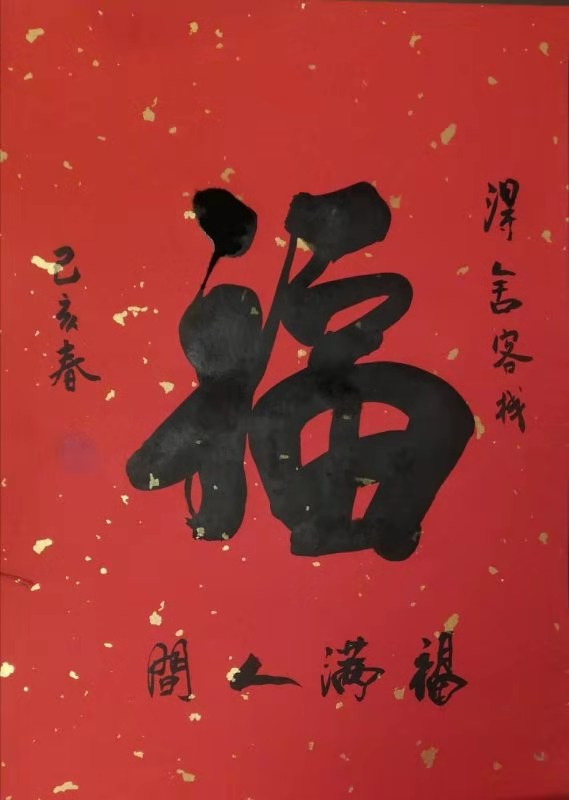 得舍客栈
福
福满人間
己亥春